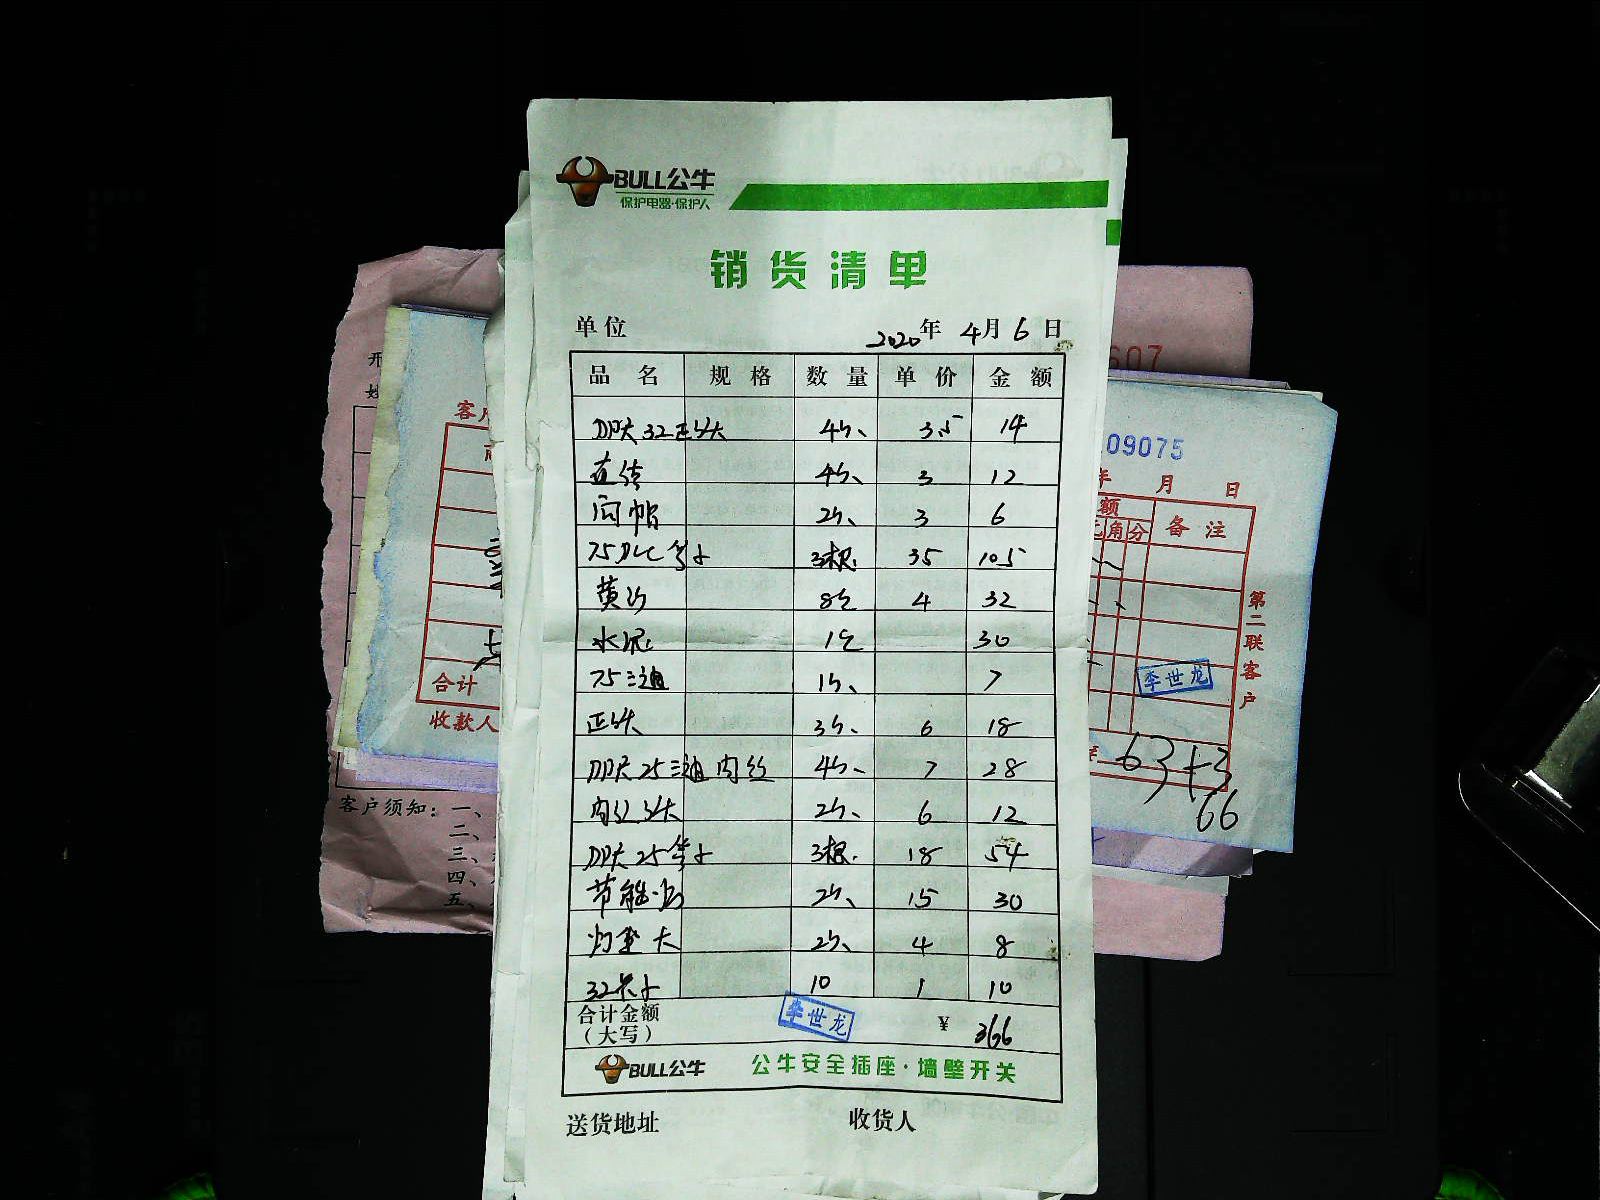 BULL公牛
保护电器·保护人
销货清单
单位 2020年 4月 6日
品名 规格 数量 单价 金额
32正外 4个、 3.5 14
直接 4个、 3 12
闷帽 2个、 3 6
75PVC管子 3根. 35 105
黄沙 8包 4 32
水泥 1包 30
75三通 1个、 7
正外 3个、 6 18
25三通内丝 4个、 7 28
内丝 2个、 6 12
25管子 3根. 18 54
节能灯 2个、 15 30
灯座 2个、 4 8
32卡子 10 1 10
合计金额
(大写) 李世龙 ¥ 366
BULL公牛 公牛安全插座·墙壁开关
送货地址 收货人
客户
合计
收款人
客户须知：一、
二、
三、
四、
五、
607
09075
年 月 日
额 备注
元角分
第二联客户
李世龙
63+3
66